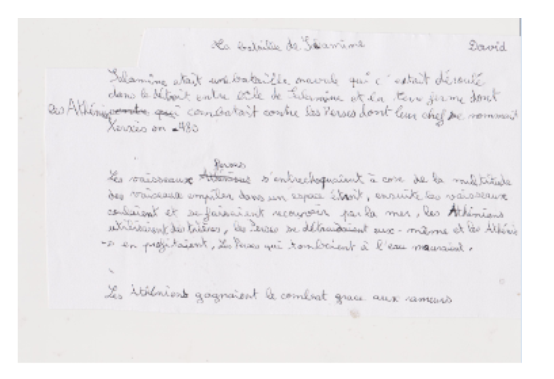 La bataille de Salamine David
Salamine était une bataille navale qui c'était déroulé
dans le détroit entre l'île de Salamine et la terre ferme dont
les Athéniens contre qui combatait contre les Perses dont leur chef se nommait
Xerxès en -480
Perses
Les vaisseaux Athéniens s'entrechoquaient à cose de la multitude
des vaisseaux empiler dans un espace étroit, ensuite les vaisseaux
coulaient et se faisaient recouvrir par la mer, les Athéniens
utilisaient des trières, les Perses se détruisaient eux-même et les Athénie
-s en profitaient, Les Perses qui tombaient à l'eau mouraient.
Les Athéniens gagnaient le combat grace aux rameurs